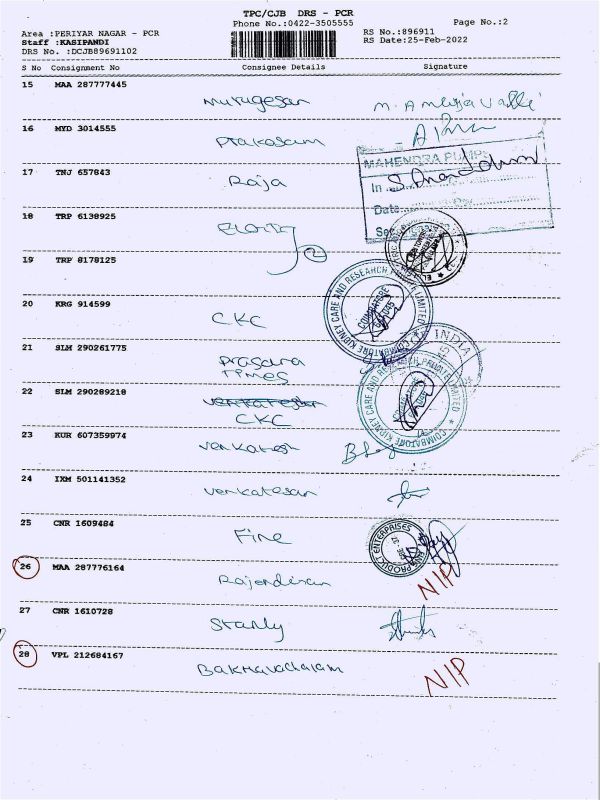 TPC/CJB DRS - PCR
Phone No.:0422-3505555
Page No.:2
Area :PERIYAR NAGAR - PCR
Staff :KASIPANDI
DRS No. :DCJB89691102
RS No.:896911
RS Date:25-Feb-2022
S No Consignment No Consignee Details Signature
15 MAA 287777445
Murugesan
16 MYD 3014555
Prakasam
MAHENDRA PUMPS
17 TNJ 657843
Raja
In
S. Anandakumar
Date
18 TRP 6138925
2
19 TRP 8178125
20 KRG 914599
CKC
COIMBATORE KIDNEY CARE AND RESEARCH PRIVATE LIMITED
COIMBATORE
641045
21 SLM 290261775
Prasana
Times
INDIA
22 SLM 290289218
CKC
COIMBATORE KIDNEY CARE AND RESEARCH PRIVATE LIMITED
23 KUR 607359974
Venkatesh
24 IXM 501141352
Venkatesan
25 CNR 1609484
Fine
ENTERPRISES
26 MAA 287776164
Rajendiran
NIP
27 CNR 1610728
Stanly
28 VPL 212684167
Bakhavachalam
NIP